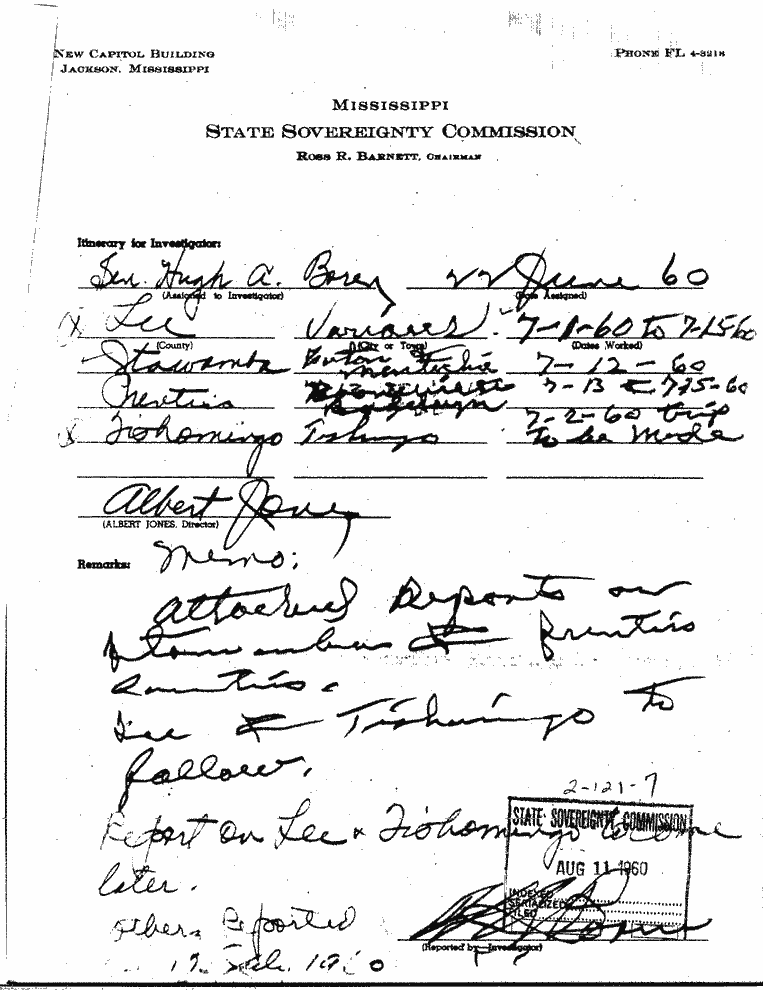 NEW CAPITOL BUILDING
JACKSON, MISSISSIPPI
PHONE FL 4-3218
MISSISSIPPI
STATE SOVEREIGNTY COMMISSION
ROSS R. BARNETT, CHAIRMAN
Itinerary for Investigator:
Hugh A. Boren 22 June 60
(Assigned to Investigator) (Date Assigned)
X Lee Various 7-1-60 to 7-15-60
(County) (City or Town) (Dates Worked)
Itawamba Fulton & Mantachie 7-12-60
Prentiss Booneville 7-13 & 7-15-60
X Tishomingo 7-2-60 trip
To be Made
Albert Jones
(ALBERT JONES, Director)
Remarks: Memo:
Attached Reports on
Itawamba & Prentiss
Counties.
Lee & Tishomingo to
follow.
2-121-7
Report on Lee & Tishomingo to come
later.
STATE SOVEREIGNTY COMMISSION
AUG 11 1960
INDEXED
SERIALIZED
FILED
Others Reported
(Reported by—Investigator)